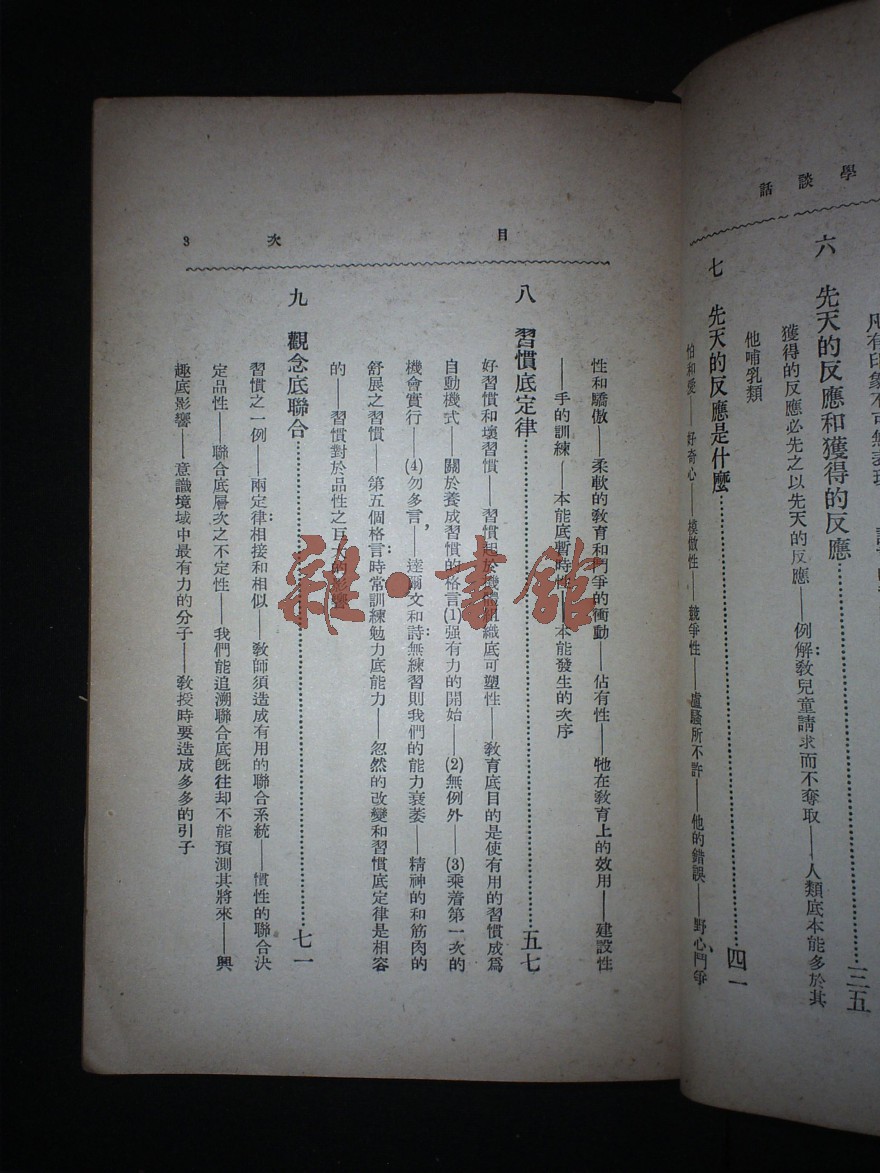 學談話
凡有印象不可無表現
六 先天的反應和獲得的反應……三五
獲得的反應必先之以先天的反應——例解:教兒童請求而不奪取——人類底本能多於其
他哺乳類
七 先天的反應是什麼……四一
怕和愛——好奇心——模倣性——競爭性——盧騷所不許——他的錯誤——野心、鬥爭
目次 3
性和驕傲——柔軟的教育和鬥爭的衝動——佔有性——牠在教育上的效用——建設性
——手的訓練——本能底暫時性——本能發生的次序
八 習慣底定律……五七
好習慣和壞習慣——習慣起於機體組織底可塑性——教育底目的是使有用的習慣成為
自動機式——關於養成習慣的格言:(1)强有力的開始——(2)無例外——(3)乘着第一次的
機會實行——(4)勿多言,——達爾文和詩:無練習則我們的能力衰萎——精神的和筋肉的
舒展之習慣——第五個格言:時常訓練勉力底能力——忽然的改變和習慣底定律是相容
的——習慣對於品性之巨大的影響
九 觀念底聯合……七一
習慣之一例——兩定律:相接和相似——教師須造成有用的聯合系統——慣性的聯合決
定品性——聯合底層次之不定性——我們能追溯聯合底既往却不能預測其將來——興
趣底影響——意識境域中最有力的分子——教授時要造成多多的引子
雜·書館